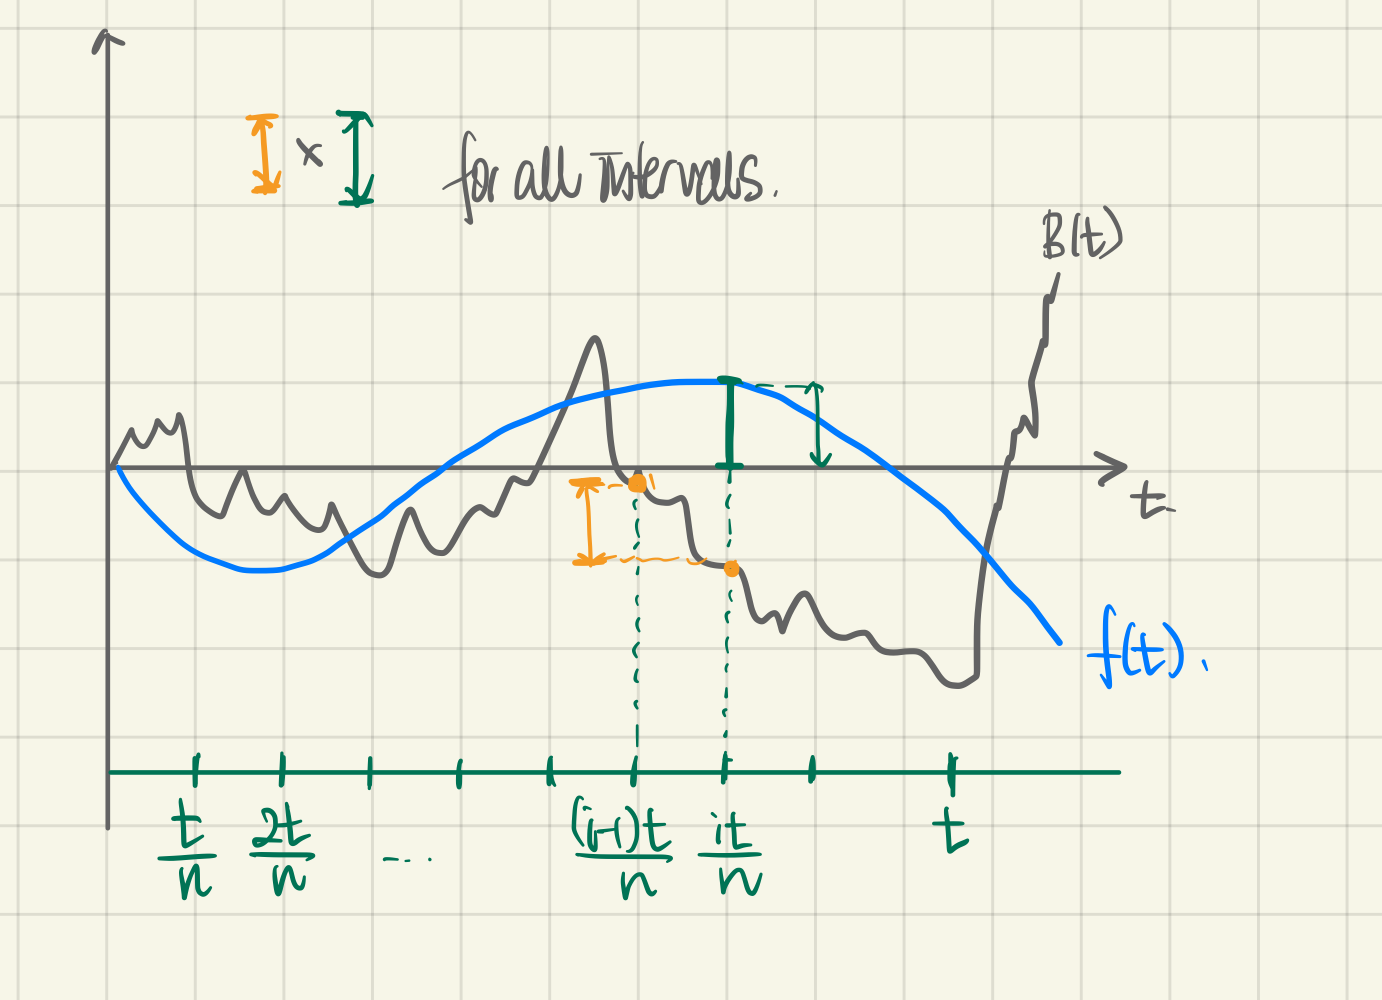 × for all intervals.
B(t)
t
f(t).
t/n 2t/n ... (i-1)t/n it/n t